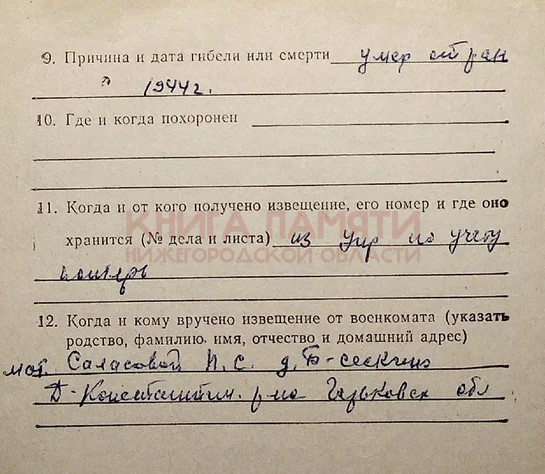 9. Причина и дата гибели или смерти умер от ран
? 1944 г.
10. Где и когда похоронен
11. Когда и от кого получено извещение, его номер и где оно
КНИГА ПАМЯТИ
хранится (№ дела и листа) из упр по учету
НИЖЕГОРОДСКОЙ ОБЛАСТИ
потерь
12. Когда и кому вручено извещение от военкомата (указать
родство, фамилию, имя, отчество и домашний адрес)
мат. Саласовой И. С. д.
Д-Константин. р-на Горьковск обл